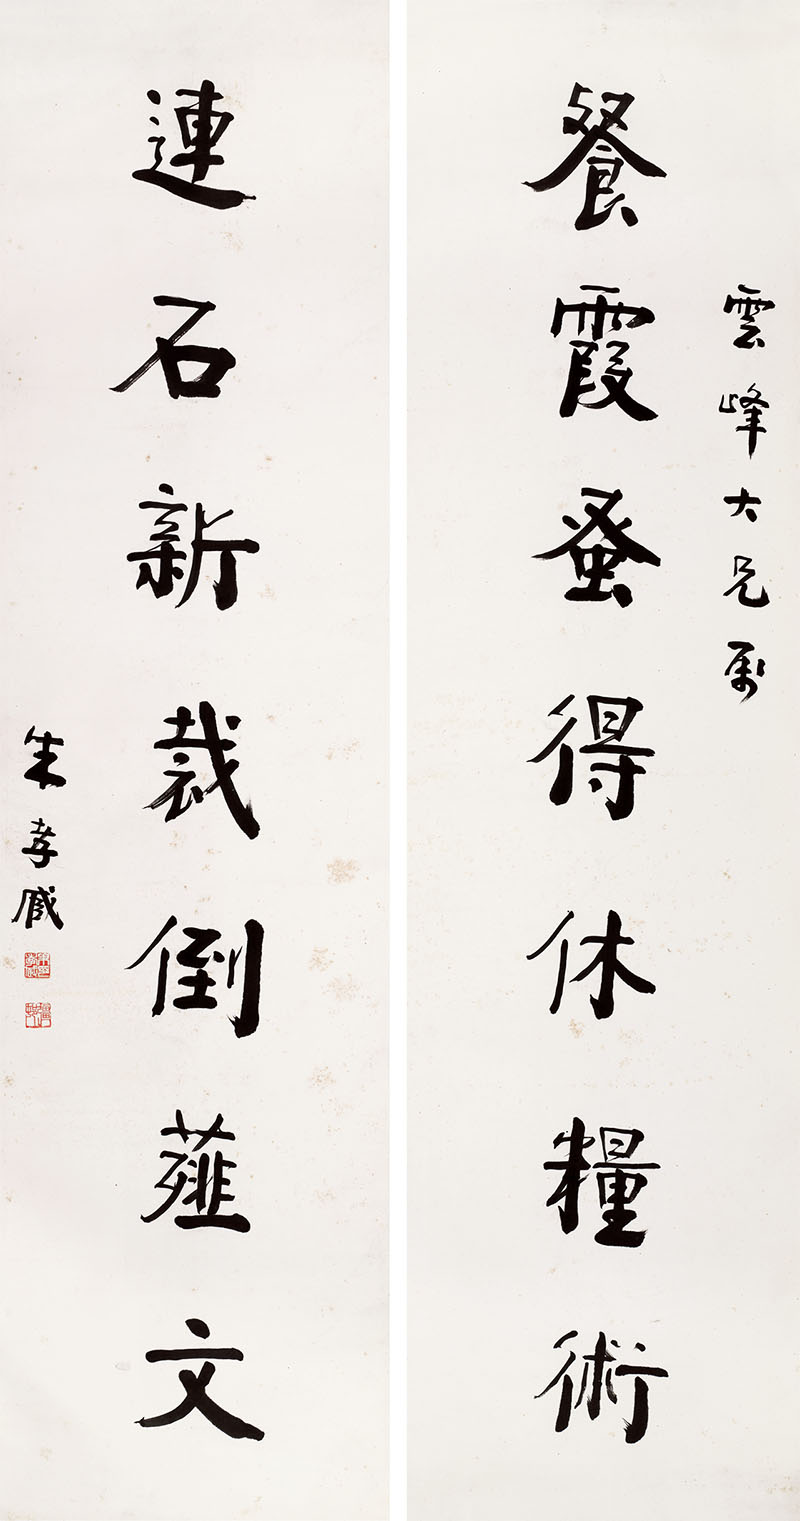 雲峰大兄属
餐霞蚤得休糧術
連石新裁倒薤文
朱孝臧